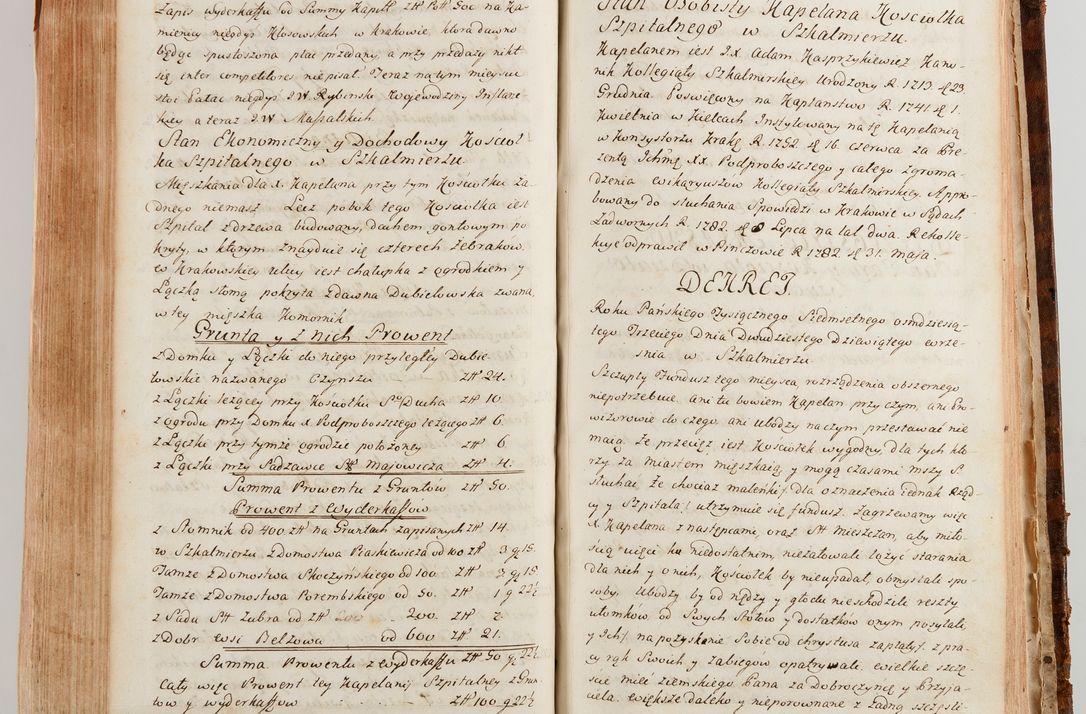 Zapis wyderkaffu od Summy Kapitł Złł Poł 500 na Ka-
mienicy niegdyś Kłosowskich w Krakowie, ktora dawno
będąc spustoszona plac przedany, a przy przedaży nikt
się inter competitores niepisał. Teraz na tym mieyscu
stoi Pałac niegdyś J.W. Rybinski Woiewodziny Inflanc-
kiey a teraz J.W. Massalskich.
Stan Ekonomiczny y Dochodowy Kościoł
ka Szpitalnego w Szkalmierzu.
Mięszkania dla X. Kapelana przy tym Kościołku ża-
dnego niemasz. Lecz pobok tego Kościołka iest
Szpital z drzewa budowany, dachem gontowym po-
kryty, w ktorym znayduie się czterech żebrakow.
w Krakowskiey ulicy iest chałupka z ogrodkiem y
Łączką słomą pokryta zdawna Dubielowska zwana,
w tey mięszka Komornik
Grunta y z nich Prowent
z Domku y Łączki do niego przyległey Dubie-
lowskie nazwanego Czynszu złł 24.
z Łączki leżącey przy Kościołku Sº Ducha złł 10
z ogrodu przy Domku X. Podproboszczego leżącego złł 6.
z Łączki przy tymże ogrodzie położoney złł 6
z Łączki przy Sadzawce Słł Majowicza złł 4.
Summa Prowentu z Gruntów złł 50.
Prowent z Wyderkaffow
z Słomnik od 400 złł na Gruntach zapisanych złł 14.
w Szkalmierzu z Domostwa Piaskiewicza od 100 złł 3 g 15.
Tamże z Domostwa Skoczyńskiego od 100 złł 3 g 15
Tamże z Domostwa Porembskiego od 50. złł 1 g 22½
z Sadu Słł Zubra od złł 200. złł 7
z Dobr wsi Bełzowa od 600 złł 21.
Summa Prowentu z wyderkaffu złł 50 g 22½
Cały więc Prowent tey Kapelanij Szpitalney z Grun-
tow y wyderkaffow złł 100 g 22½
Stan Osobisty Kapelana Kosciołka
Szpitalnego w Szkalmierzu.
Kapelanem iest J.X. Adam Kasprzykiewicz Kano-
nik Kollegiaty Szkalmirskiey Urodzony R. 1713. d 23.
Grudnia. Poswięcony na Kapłanstwo R. 1741 d 1.
Kwietnia w Kielcach Instytuowany na tę Kapelanią
w Konsystorzu Krakg R. 1752 d 16. Czerwca za Pre-
zentą Ichmę XX. Podproboszczego y całego Zgroma-
dzenia wikaryuszow Kollegiaty Szkalmirskiey. Appro-
bowany do słuchania Spowiedzi w Krakowie w Sądach
Zadwornych R. 1782. d 8 Lipca na lat dwa. Rekolle-
kcye odprawił w Pinczowie R 1782 d 31. Maia.
DEKRET.
Roku Pańskiego Tysiącznego Siedmsetnego osmdziesią-
tego Trzeciego Dnia Dwudziestego Dziewiątego wrze-
snia w Szkalmierzu
Szczupły Fundusz tego mieysca, rozrządzenia obszernego
niepotrzebuie. ani tu bowiem Kapelan przy czym, ani Pro-
wizorowie do czego, ani ubodzy na czym przestawać nie
maią. że przecięż iest Kościołek wygodny, dla tych któ-
rzy za miastem mięszkaią, y mogą czasami mszy S.
słuchać że chociaż maleńki /: dla oznaczenia iednak Rząd-
cy y Szpitala / utrzymuie się fundusz. Zagrzewamy więc
X. Kapelana z następcami, oraz Słł Mieszczan, aby miło-
ścią więci ku niedostatnim, nieżałowali łożyć starania
dla nich y o nich, Kościołek by nieupadał, obmyślali spo-
soby. Ubodzy by od nędzy y głodu nieschodzili reszty
ułomków od Swych Stołów y dostatków onym posyłali,
y Ich /. na pozyskanie Sobie od Chrystusa zapłaty /. z pra-
cy rąk Swoich y zabiegów opatrywali. wielkie szczę-
ście mieć ziemskiego Pana za Dobroczyncę y Przyja-
ciela. większe daleko y nieporownane z żadną szczęśli-